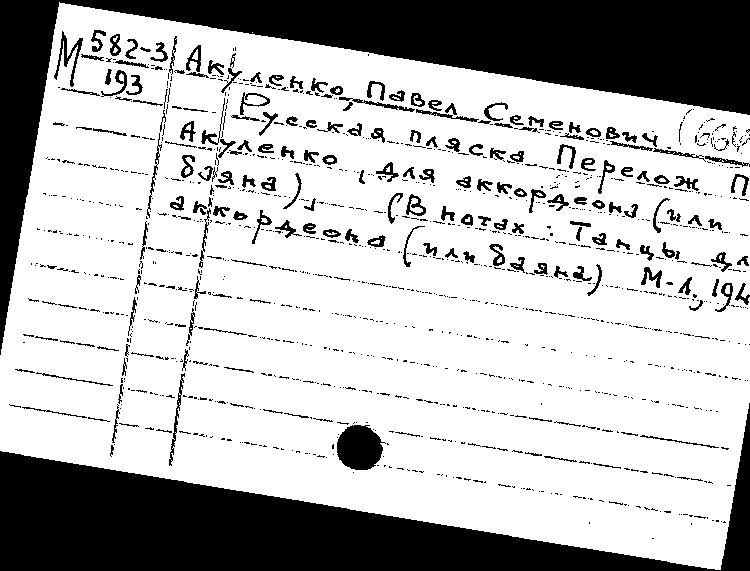 М 582-3
193
Акуленко, Павел Семенович.
Русская пляска Перелож П
Акуленко, для аккордеона (или
баяна). (В нотах: Танцы дл
аккордеона (или баяна) М-Л., 194